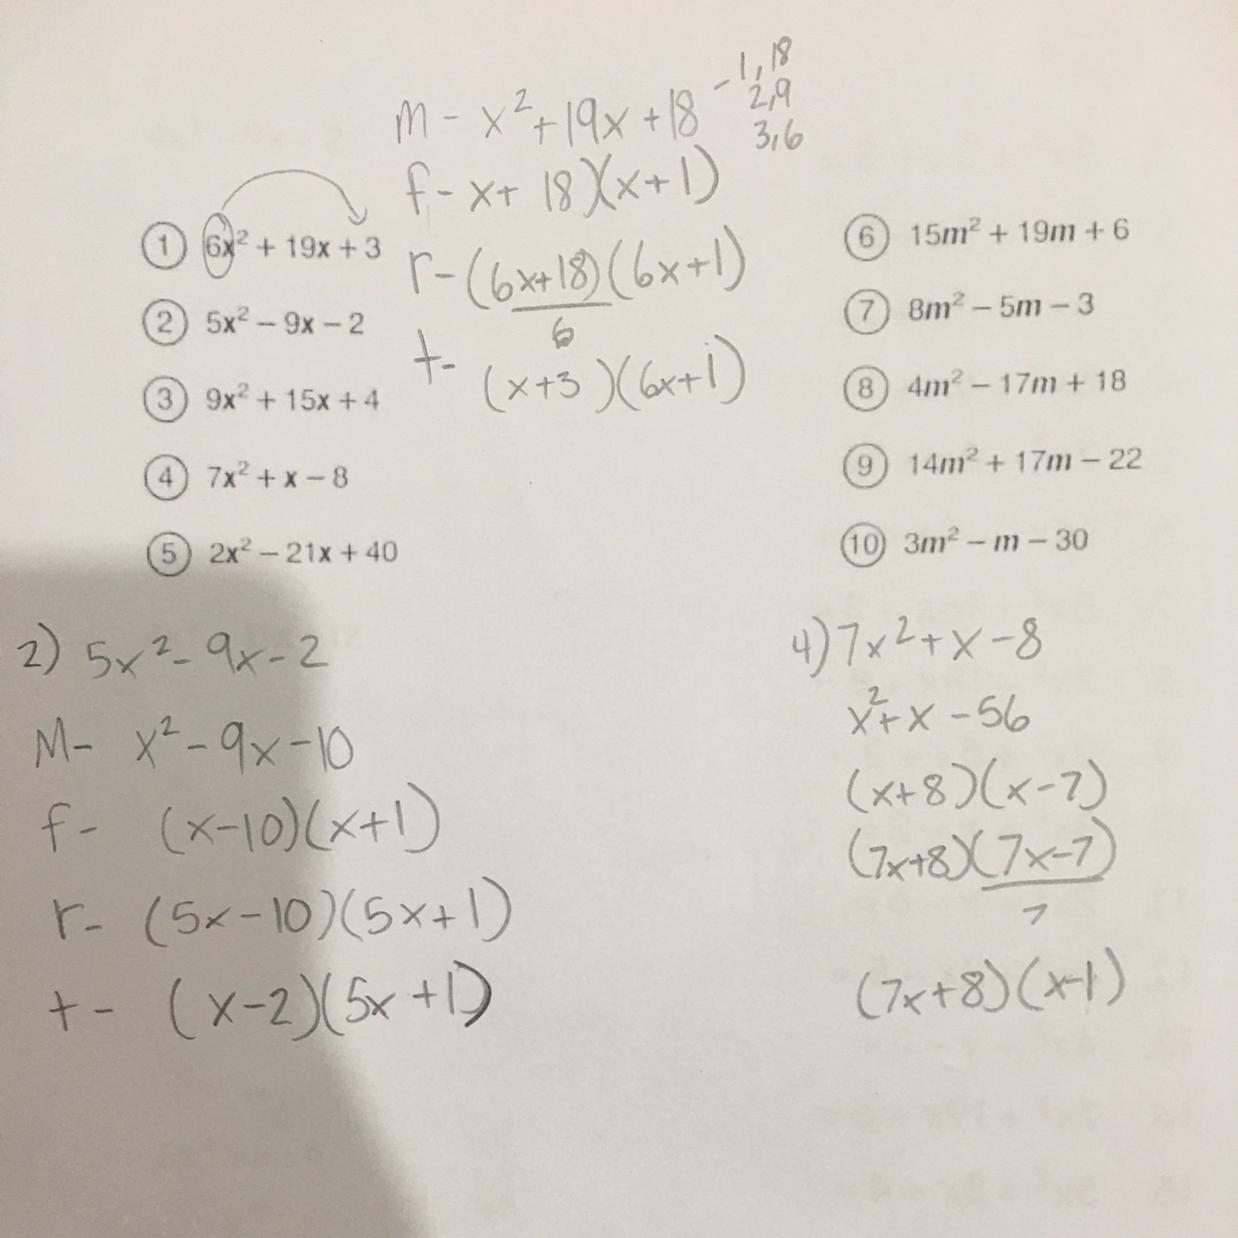 m - x² + 19x + 18 - 1, 18
2, 9
3, 6
f - x + 18)(x + 1)
r - (6x+18)(6x+1)
6
t - (x+3)(6x+1)
① 6x² + 19x + 3
② 5x² – 9x – 2
③ 9x² + 15x + 4
④ 7x² + x – 8
⑤ 2x² – 21x + 40
⑥ 15m² + 19m + 6
⑦ 8m² – 5m – 3
⑧ 4m² – 17m + 18
⑨ 14m² + 17m – 22
⑩ 3m² – m – 30
2) 5x² - 9x - 2
M - x² - 9x - 10
f - (x-10)(x+1)
r - (5x-10)(5x+1)
t - (x-2)(5x+1)
4) 7x² + x - 8
x² + x - 56
(x+8)(x-7)
(7x+8)(7x-7)
7
(7x+8)(x-1)